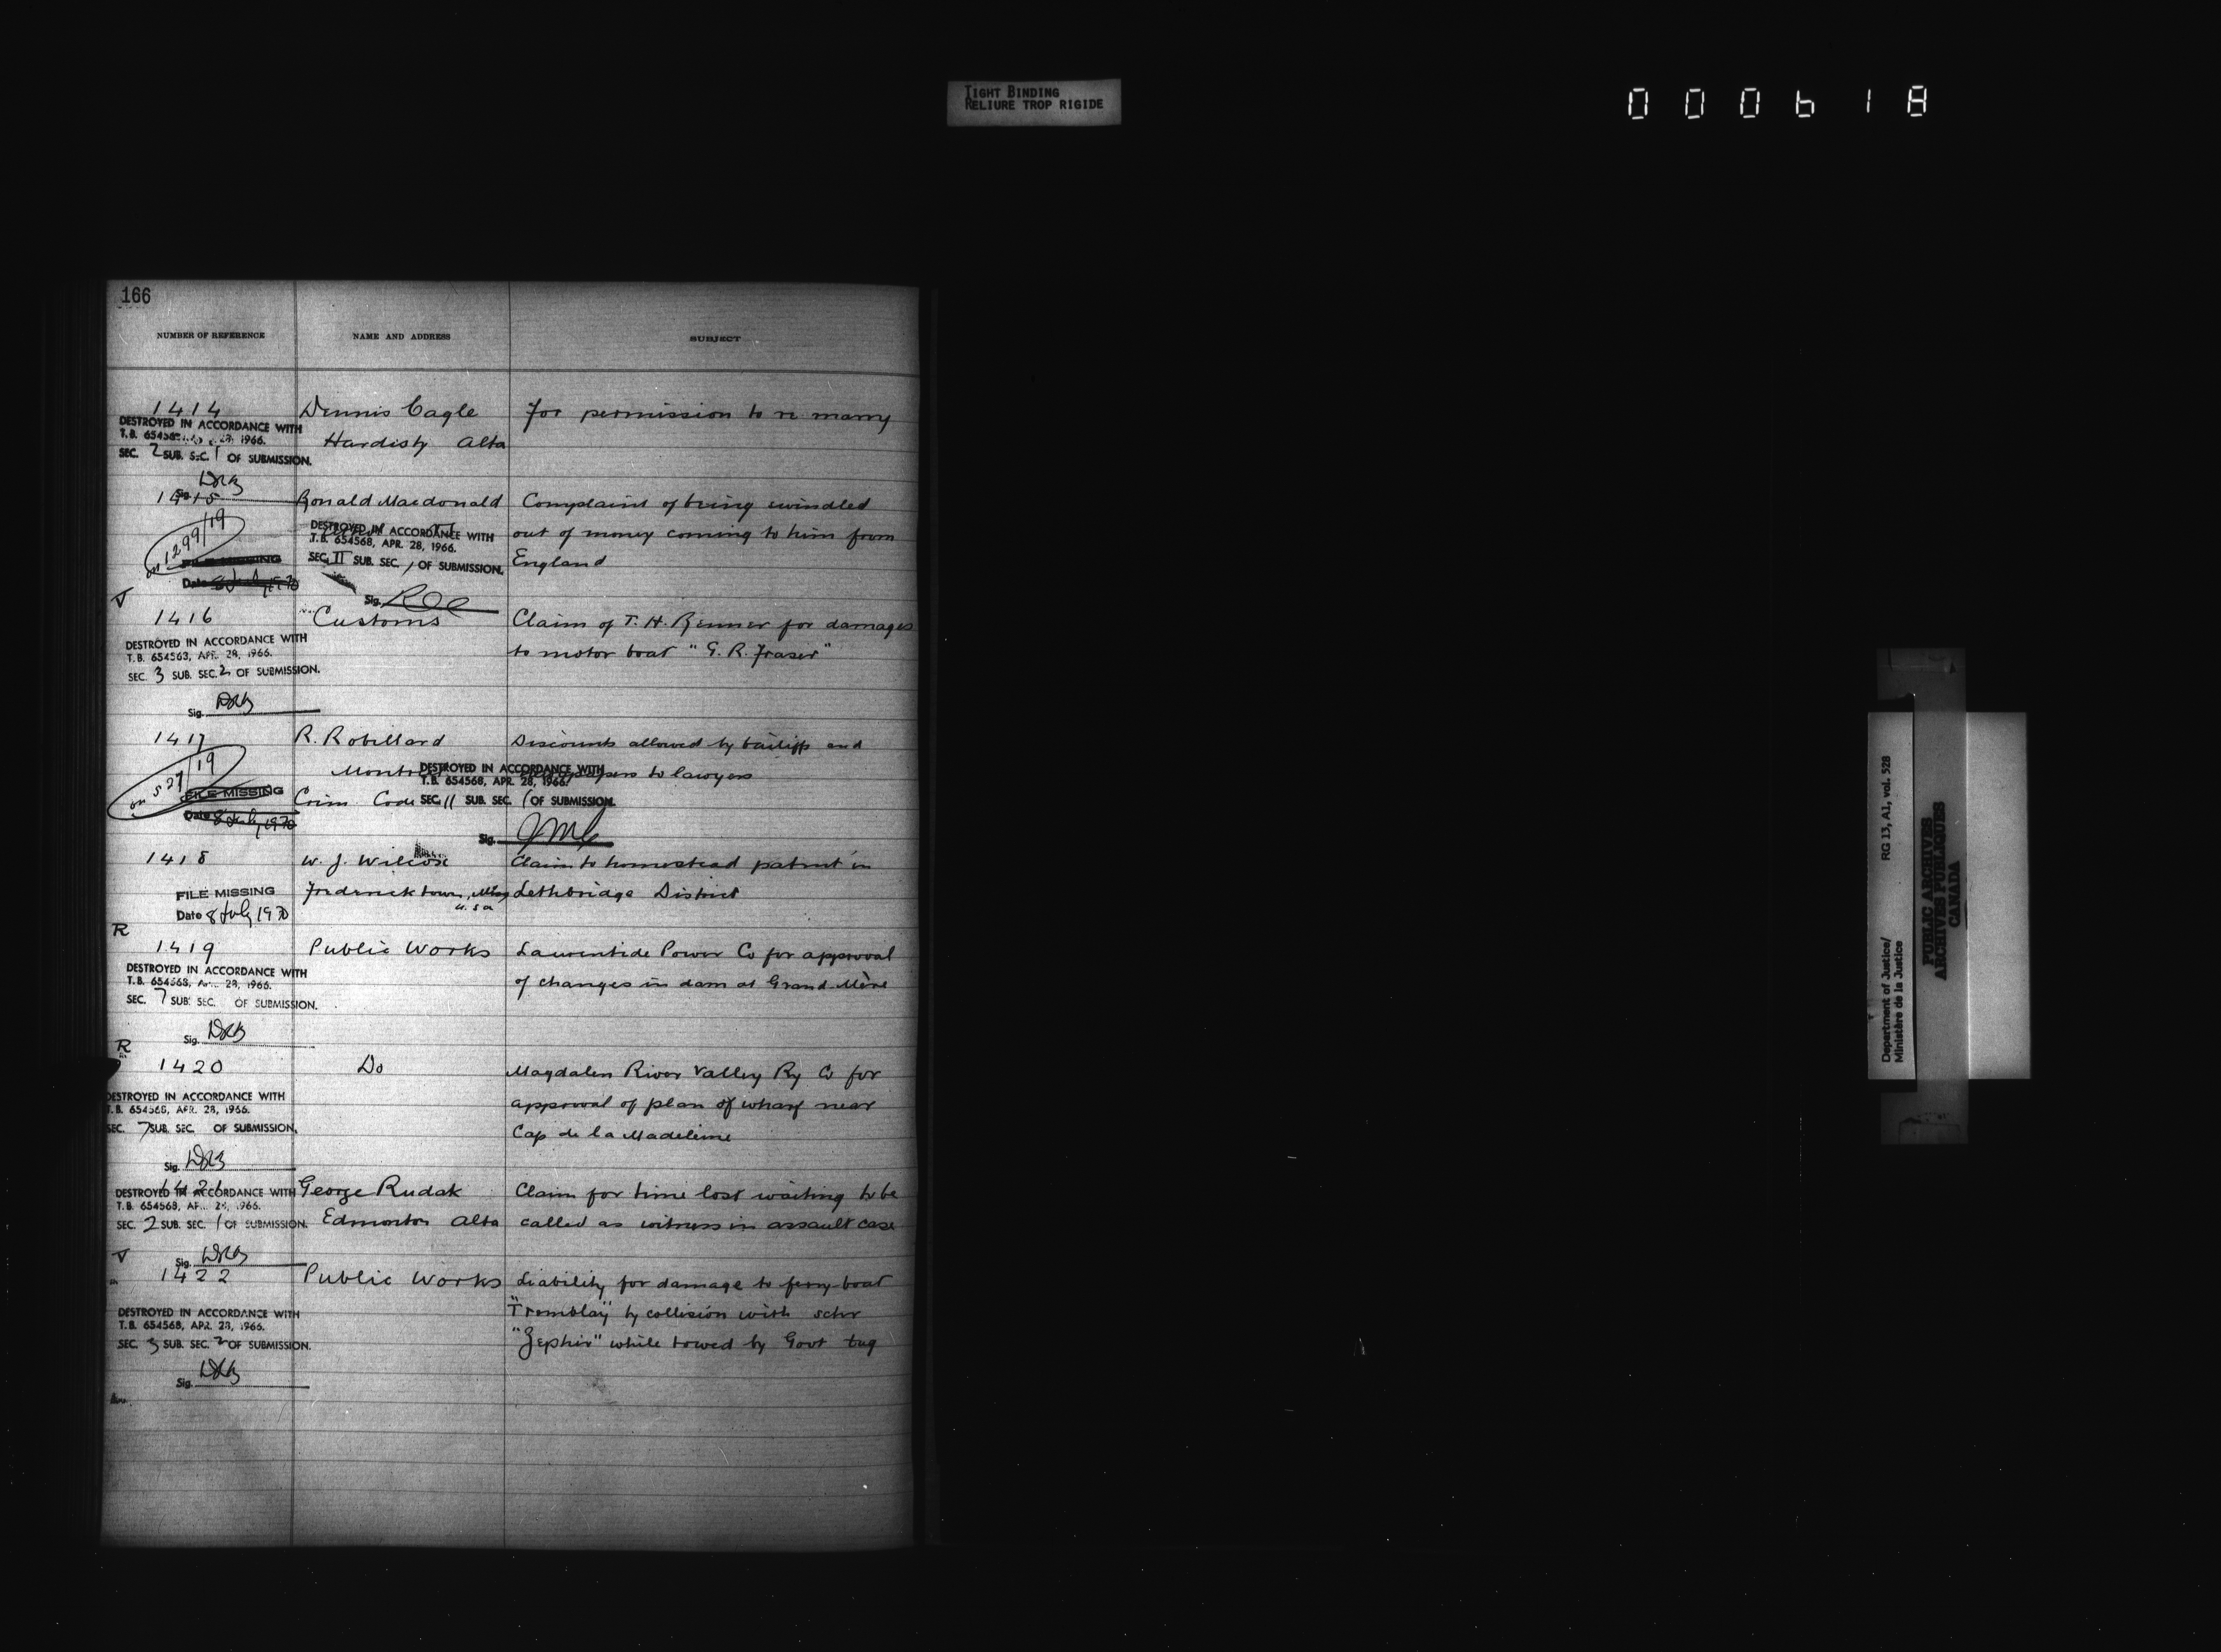 TIGHT BINDING
RELIURE TROP RIGIDE
000618
166
NUMBER OF REFERENCE NAME AND ADDRESS SUBJECT
1414 Dennis Cagle For permission to re marry
DESTROYED IN ACCORDANCE WITH
T.B. 654568 28, 1966.
Hardisty Alta
SEC. 2 SUB. SEC. 1 OF SUBMISSION.
Sig. DRB
1415 Ronald Macdonald Complaint of being swindled
on 1299/19
DESTROYED IN ACCORDANCE WITH out of money coming to him from
T.B. 654568, APR. 28, 1966.
FILE MISSING SEC. II SUB. SEC. 1 OF SUBMISSION. England
Date 8 July 1970
Sig.
1416 Customs Claim of T. H. Renner for damages
DESTROYED IN ACCORDANCE WITH to motor boat "G. R. Fraser"
T.B. 654563, APR. 28, 1966.
SEC. 3 SUB. SEC. 2 OF SUBMISSION.
Sig. DRB
1417 R. Robillard Discounts allowed by bailiffs and
on 527/19 Montreal papers to lawyers
DESTROYED IN ACCORDANCE WITH
T.B. 654568, APR. 28, 1966.
FILE MISSING Crim Code SEC. 11 SUB. SEC. 1 OF SUBMISSION.
Date 8 July, 1970
Sig.
1418 W. J. Wilcox Claim to homestead patent in
FILE MISSING Fredericktown, U.S.A Lethbridge District
Date 8 July 1970
R
1419 Public Works Laurentide Power Co for approval
DESTROYED IN ACCORDANCE WITH
T.B. 654568, 28, 1966. of changes in dam at Grand Mère
SEC. 7 SUB. SEC. OF SUBMISSION.
Sig. DRB
R
1420 Do Magdalen River Valley Ry Co for
DESTROYED IN ACCORDANCE WITH approval of plan of wharf near
T.B. 654568, APR. 28, 1966.
SEC. 7 SUB. SEC. OF SUBMISSION. Cap de la Madeleine
Sig. DRB
1421 George Rudak Claim for time lost waiting to be
DESTROYED IN ACCORDANCE WITH
T.B. 654568, 28, 1966.
SEC. 2 SUB. SEC. 1 OF SUBMISSION. Edmonton Alta called as witness in assault case
Sig. DRB
1422 Public Works Liability for damage to ferry-boat
DESTROYED IN ACCORDANCE WITH "Tremblay" by collision with schr
T.B. 654568, APR. 28, 1966.
SEC. 3 SUB. SEC. 2 OF SUBMISSION. "Zephir" while towed by Govt tug
Sig. DRB
Department of Justice/ RG 13, A1, vol. 528
Ministère de la Justice
PUBLIC ARCHIVES
ARCHIVES PUBLIQUES
CANADA